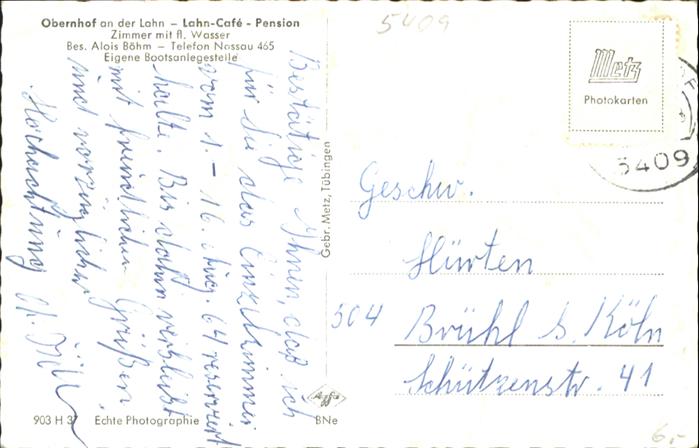 Obernhof an der Lahn – Lahn-Café - Pension
Zimmer mit fl. Wasser
Bes. Alois Böhm – Telefon Nassau 465
Eigene Bootsanlegestelle
5409
Metz
Photokarten
5409
Bestätige Ihnen, daß ich
für Sie das Einzelzimmer
vom 1. – 16. Aug. 64 reserviert
halte. Bis dahin verbleibt
mit freundlichen Grüßen
und vorzüglicher
Hochachtung
Gebr. Metz, Tübingen
Geschw.
Hürten
504 Brühl b. Köln
Schützenstr. 41
903 H 37 Echte Photographie
Agfa
BNe
6,-